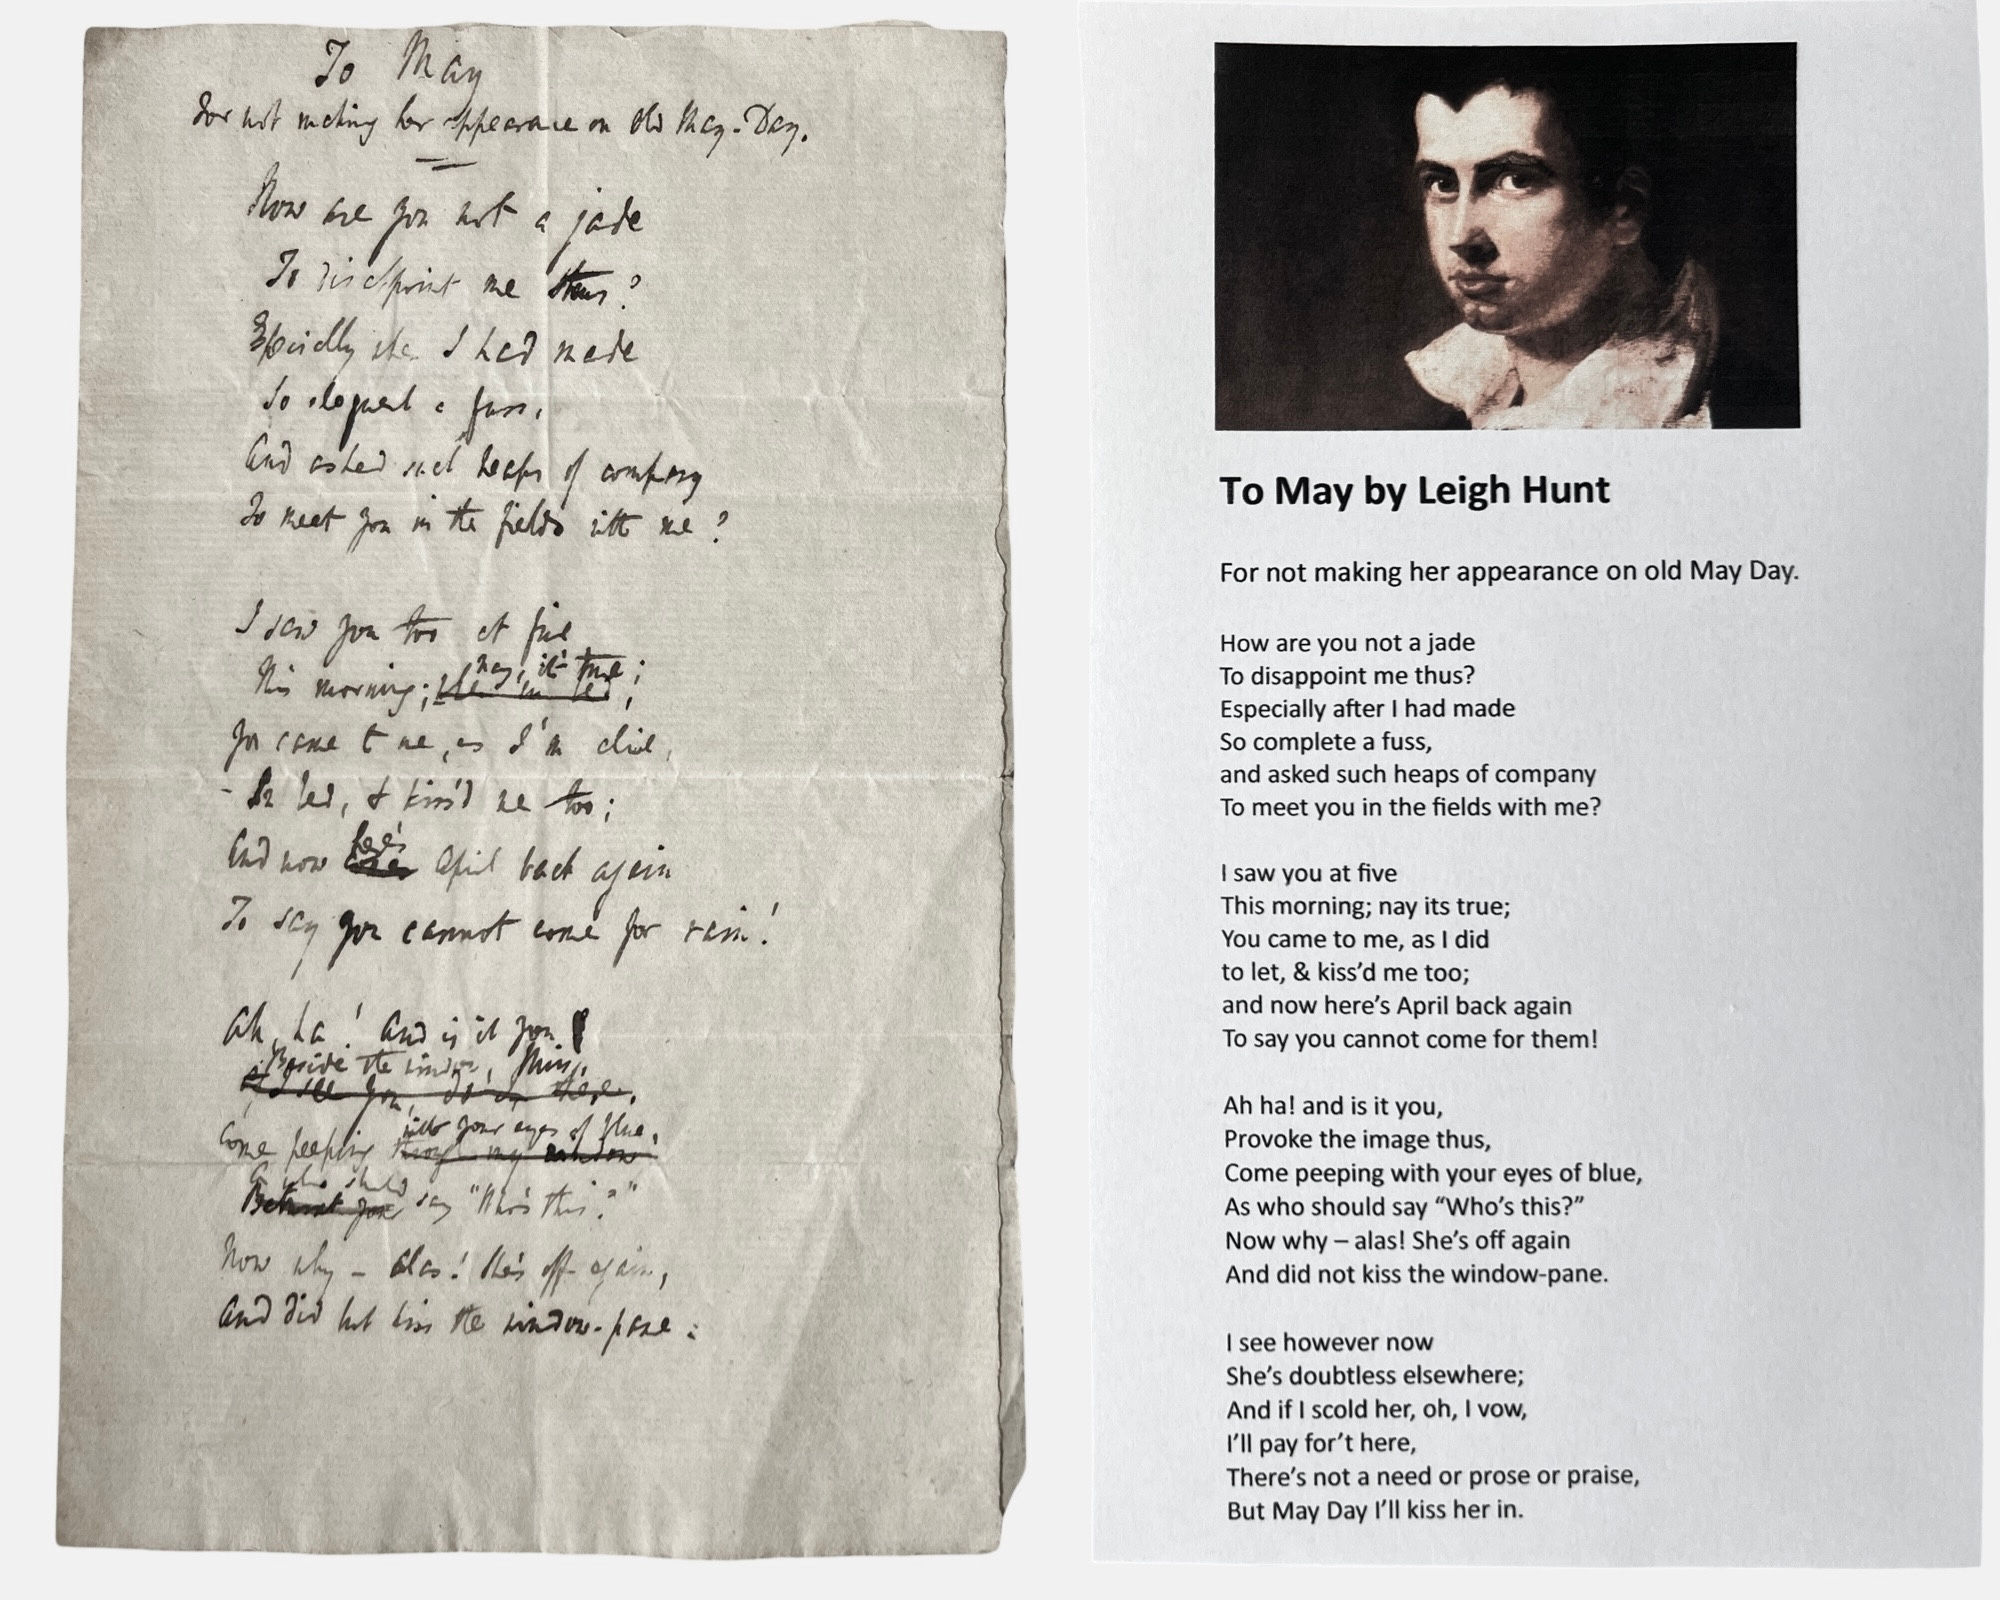 To May
For not making her appearance on Old May-Day.
Now are you not a jade
To disappoint me thus?
Especially when I had made
So eloquent a fuss,
And asked such heaps of company
To meet you in the fields with me?
I saw you too at five
This morning; nay, it's true;
You came to me, as I'm alive,
- In bed, & kiss'd me too;
And now here's April back again
To say you cannot come for rain!
Ah, ha! And is it you
Beside the window, Miss,
Come peeping with your eyes of blue,
As who should say "Who's this?"
Now why – Alas! She's off again,
And did but kiss the window-pane:
To May by Leigh Hunt
For not making her appearance on old May Day.
How are you not a jade
To disappoint me thus?
Especially after I had made
So complete a fuss,
and asked such heaps of company
To meet you in the fields with me?
I saw you at five
This morning; nay its true;
You came to me, as I did
to let, & kiss’d me too;
and now here’s April back again
To say you cannot come for them!
Ah ha! and is it you,
Provoke the image thus,
Come peeping with your eyes of blue,
As who should say “Who’s this?”
Now why – alas! She’s off again
And did not kiss the window-pane.
I see however now
She’s doubtless elsewhere;
And if I scold her, oh, I vow,
I’ll pay for’t here,
There’s not a need or prose or praise,
But May Day I’ll kiss her in.